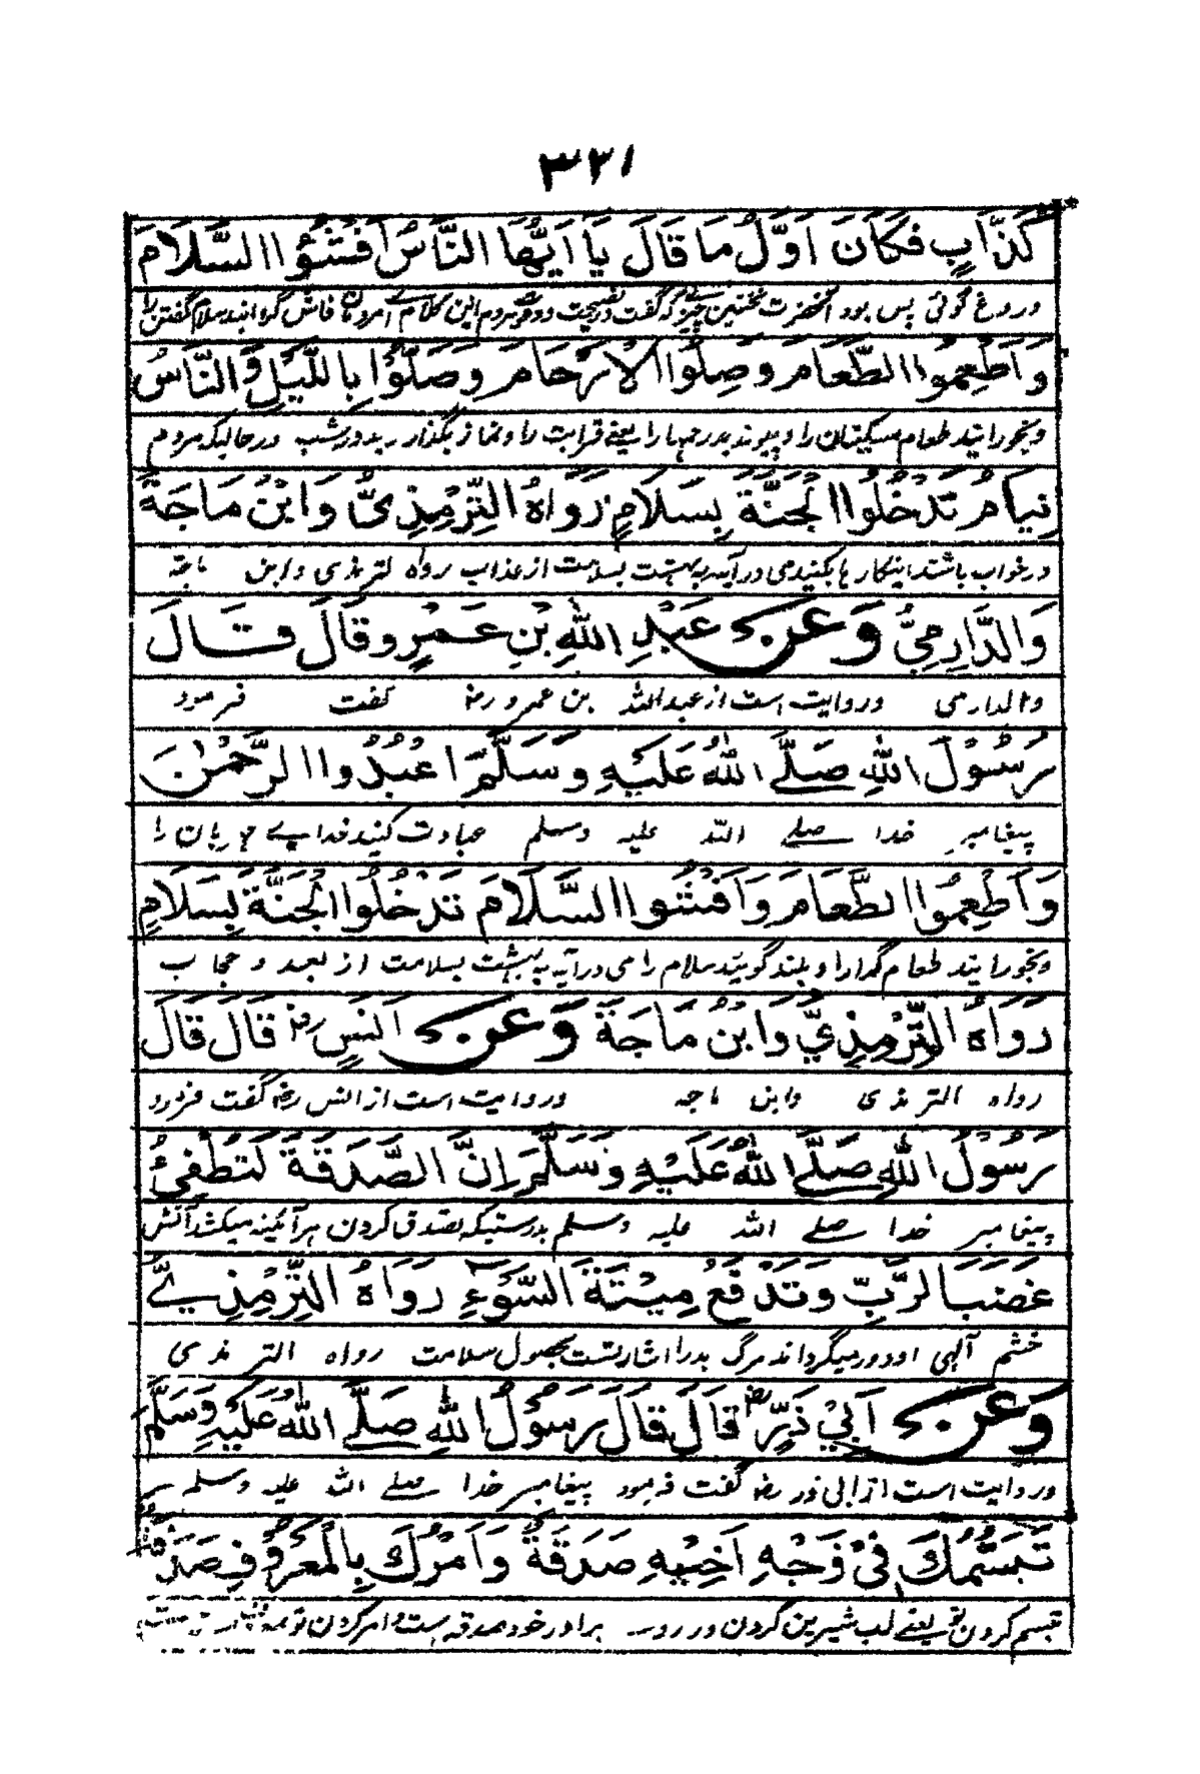 ٣٢١
كَذَّابٍ فَكَانَ اَوَّلُ مَا قَالَ يَا اَيُّهَا النَّاسُ اَفْشُوا السَّلَامَ
دروغ گوئی پس بود آنحضرت نخستین چیزیکه گفت این کلام اے مردمان فاش گردانید سلام گفتن را
وَاَطْعِمُوا الطَّعَامَ وَصِلُوا الْاَرْحَامَ وَصَلُّوْا بِاللَّيْلِ وَالنَّاسُ
و بخورانید طعام مسکینان را و پیوند بدرحمها را یعنے قرابت را و نماز بگذارید در شب در حالیکه مردم
نِيَامٌ تَدْخُلُوا الْجَنَّةَ بِسَلَامٍ رَوَاهُ التِّرْمِذِيُّ وَابْنُ مَاجَةَ
در خواب باشند اینکارها بکنید می درآیید به بهشت بسلامت از عذاب رواه لترمذی وابن ماجة
وَالدَّارِمِيُّ وَعَنْ عَبْدِ اللّٰهِ بْنِ عَمْرٍو قَالَ قَالَ
والدارمی و روایت است از عبدالله بن عمرو رض گفت فرمود
رَسُوْلُ اللّٰهِ صَلَّے اللّٰهُ عَلَيْهِ وَسَلَّمَ اعْبُدُوا الرَّحْمٰنَ
پیغامبر خدا صلے الله علیه وسلم عبادت کنید خداے مهربان را
وَاَطْعِمُوا الطَّعَامَ وَاَفْشُوا السَّلَامَ تَدْخُلُوا الْجَنَّةَ بِسَلَامٍ
و بخورانید طعام گدارا و بلند گویند سلام را می درآیید به بهشت بسلامت از بعد و حجاب
رَوَاهُ التِّرْمِذِيُّ وَابْنُ مَاجَةَ وَعَنْ اَنَسٍ رض قَالَ قَالَ
رواه الترمذی وابن ماجه و روایت است از انس رض گفت فرمود
رَسُوْلُ اللّٰهِ صَلَّے اللّٰهُ عَلَيْهِ وَسَلَّمَ اِنَّ الصَّدَقَةَ لَتُطْفِئُ
پیغامبر خدا صلے الله علیه وسلم بدرستیکه تصدق کردن هر آئینه میکشد آتش
غَضَبَ الرَّبِّ وَتَدْفَعُ مِيْتَةَ السُّوْءِ رَوَاهُ التِّرْمِذِيُّ
خشم آلهی او دور میگرداند مرگ بد را اشارتست بحصول سلامت رواه الترمذی
وَعَنْ اَبِيْ ذَرٍّ رض قَالَ قَالَ رَسُوْلُ اللّٰهِ صَلَّے اللّٰهُ عَلَيْهِ وَسَلَّمَ
و روایت است از ابی ذر رض گفت فرمود پیغامبر خدا صلے الله علیه وسلم
تَبَسُّمُكَ فِيْ وَجْهِ اَخِيْهِ صَدَقَةٌ وَاَمْرُكَ بِالْمَعْرُوْفِ صَدَقَةٌ
تبسم کردن تو یعنے لب شیرین کردن در روے برادر خود صدقه است و امر کردن تو